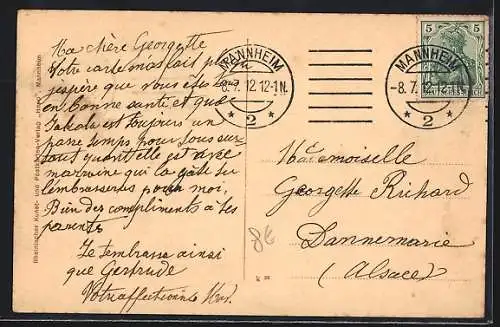 Ma chère Georgette
Votre carte m'as fait plaisir
j'espère que vous êtes tous
en bonne santé et que
est toujours un
passe temps pour tous sur-
tout quant elle est avec
marraine qui la gâte
l'embrasserez pour moi.
Bien des compliments à tes
parents
Je t'embrasse ainsi
que Gertrude
Votre affectionnée
Rheinischer Kunst- und Postkarten-Verlag „Hera“, Mannheim
MANNHEIM
-8.7.12.12-1N.
* 2 *
MANNHEIM
-8.7.12.12-1N.
* 2 *
5 5
Mademoiselle
Georgette Richard
Dannemarie
(Alsace)
8€